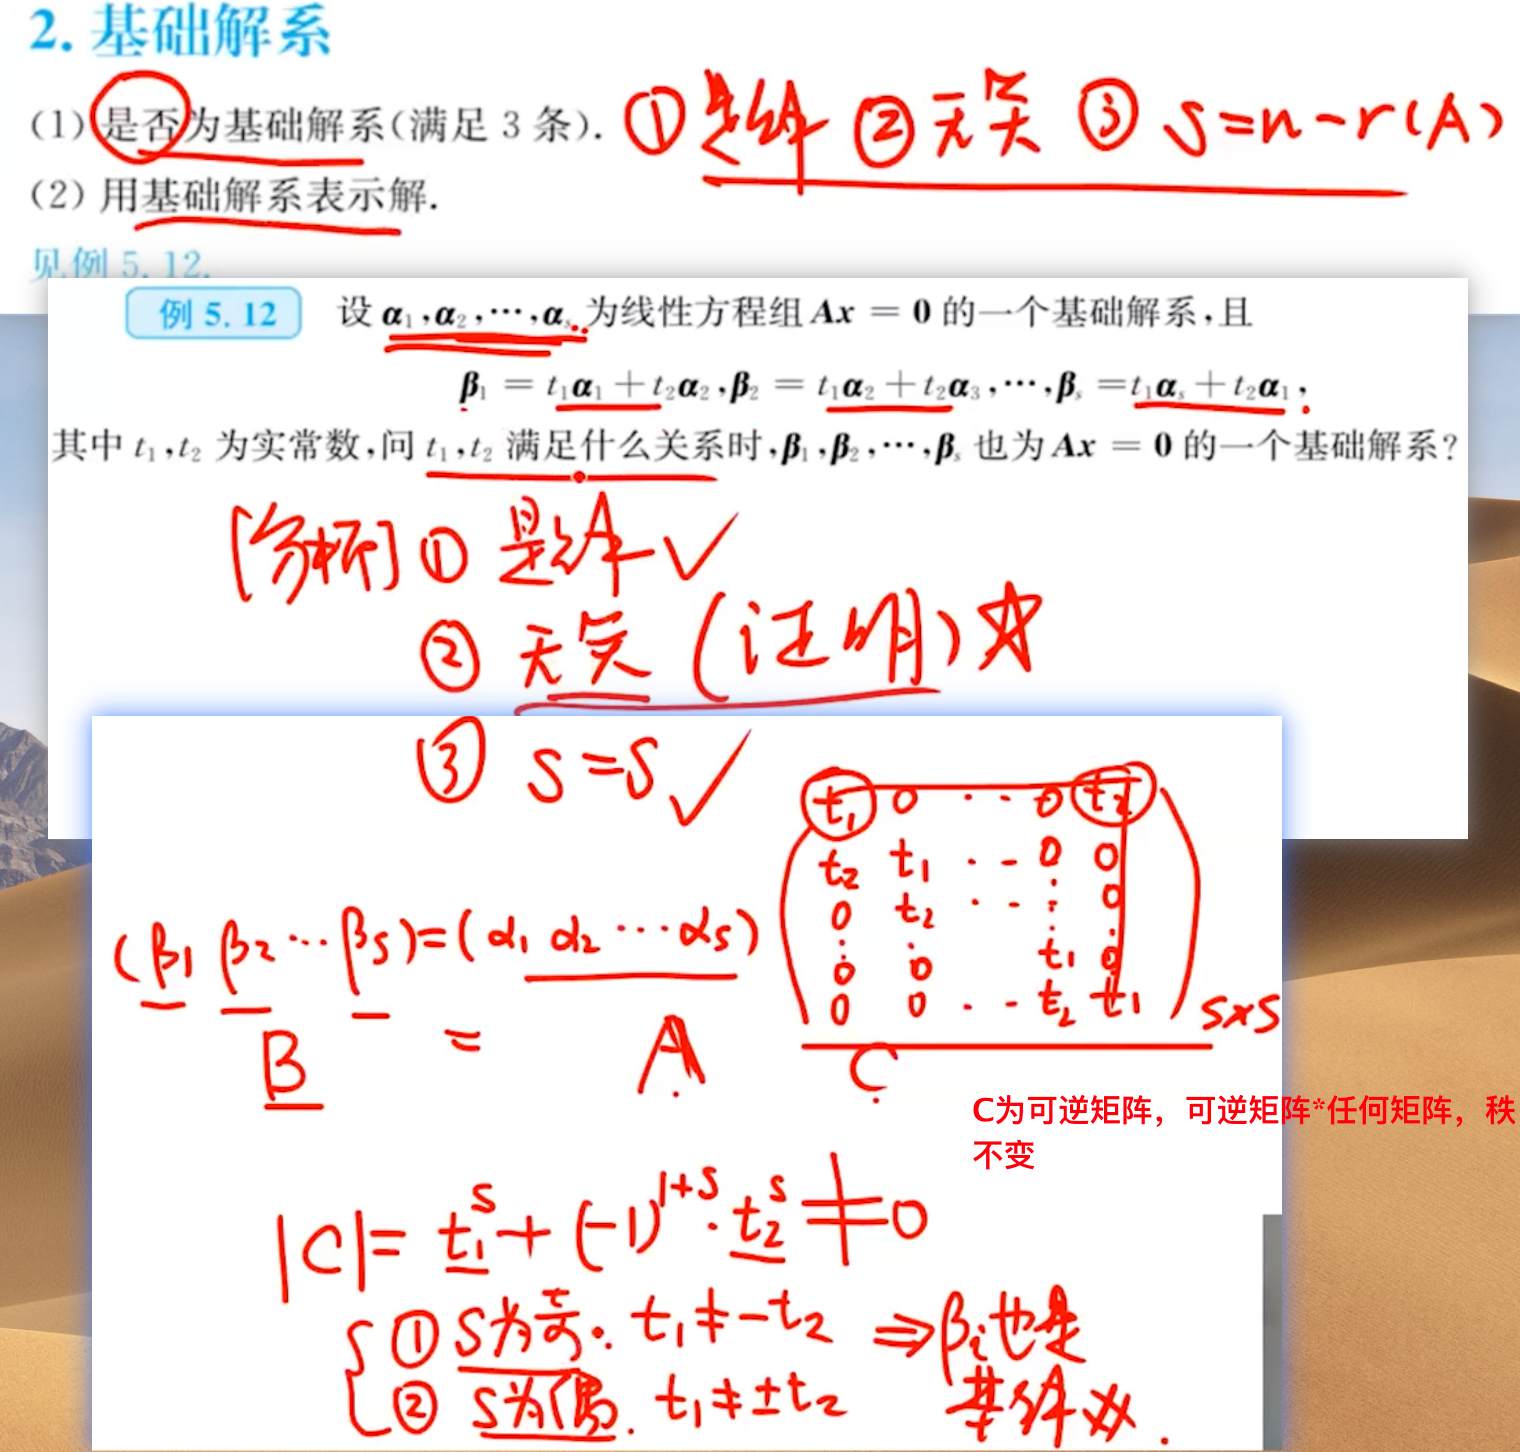 2. 基础解系
(1) 是否为基础解系(满足 3 条). ①是解 ②无关 ③ s=n-r(A)
(2) 用基础解系表示解.
见例 5.12.
例 5.12 设 α₁,α₂,⋯,αₛ 为线性方程组 Ax = 0 的一个基础解系,且
β₁ = t₁α₁ + t₂α₂,β₂ = t₁α₂ + t₂α₃,⋯,βₛ = t₁αₛ + t₂α₁,
其中 t₁,t₂ 为实常数,问 t₁,t₂ 满足什么关系时,β₁,β₂,⋯,βₛ 也为 Ax = 0 的一个基础解系?
[分析] ① 是解 ✓
② 无关 (证明) ☆
③ s=s ✓
t₁ 0 ·- 0 t₂
t₂ t₁ ·- 0 0
0 t₂ ·- ⋮ 0
(β₁ β₂ ⋯ βs)=(α₁ α₂ ⋯ αs)
⋮ ⋮ ⋮ ⋮
0 0 t₁ 0
0 0 ·- t₂ t₁ s×s
B = A C
C为可逆矩阵，可逆矩阵*任何矩阵，秩
不变
|C|= t₁ˢ+(-1)¹⁺ˢ·t₂ˢ≠0
① s为奇. t₁≠-t₂ ⇒βᵢ也是
② s为偶. t₁≠±t₂ 基解系.